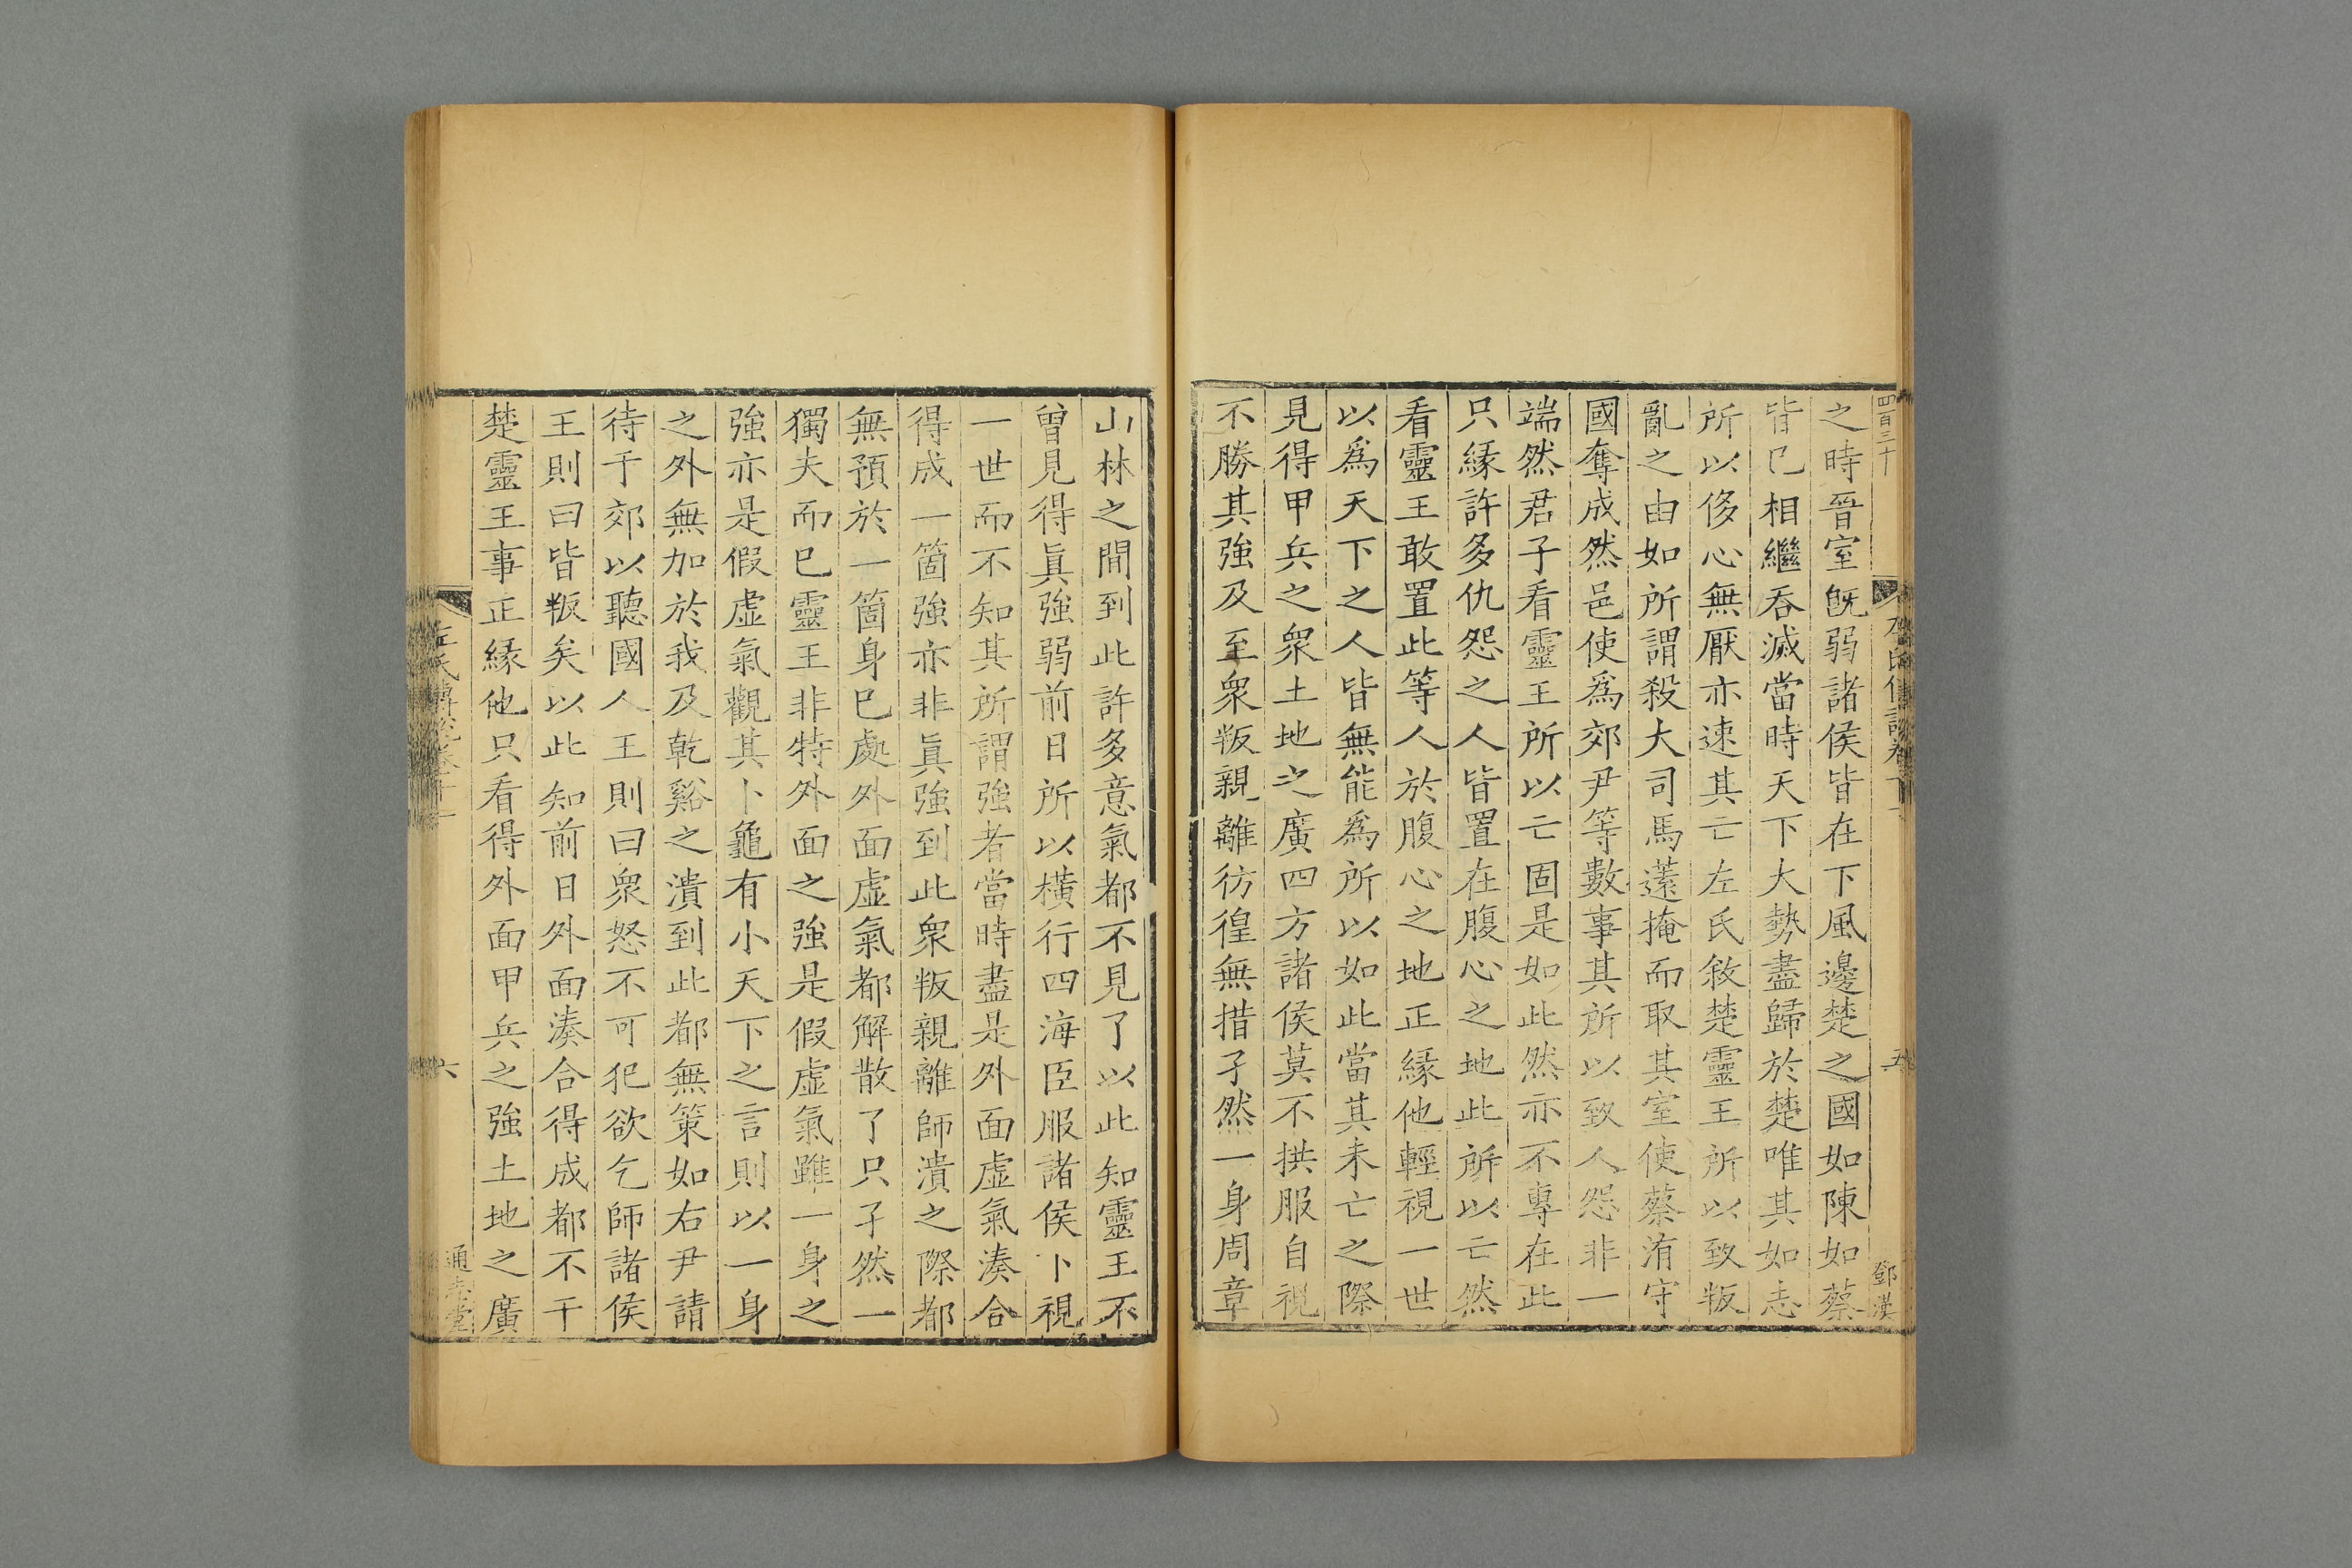 四百三十
五
鄧漢
之時晉室旣弱諸侯皆在下風邊楚之國如陳如蔡
皆已相繼吞滅當時天下大勢盡歸於楚唯其如志
所以侈心無厭亦速其亡左氏敘楚靈王所以致叛
亂之由如所謂殺大司馬薳掩而取其室使蔡洧守
國奪成然邑使爲郊尹等數事其所以致人怨非一
端然君子看靈王所以亡固是如此然亦不專在此
只緣許多仇怨之人皆置在腹心之地此所以亡然
看靈王敢置此等人於腹心之地正緣他輕視一世
以爲天下之人皆無能爲所以如此當其未亡之際
見得甲兵之衆土地之廣四方諸侯莫不拱服自視
不勝其強及至衆叛親離彷徨無措孑然一身周章
山林之間到此許多意氣都不見了以此知靈王不
曾見得眞強弱前日所以橫行四海臣服諸侯卜視
一世而不知其所謂強者當時盡是外面虛氣湊合
得成一箇強亦非眞強到此衆叛親離師潰之際都
無預於一箇身已處外面虛氣都解散了只孑然一
獨夫而已靈王非特外面之強是假虛氣雖一身之
強亦是假虛氣觀其卜龜有小天下之言則以一身
之外無加於我及乾谿之潰到此都無策如右尹請
待于郊以聽國人王則曰衆怒不可犯欲乞師諸侯
王則曰皆叛矣以此知前日外面湊合得成都不干
楚靈王事正緣他只看得外面甲兵之強土地之廣
左氏傳說卷十一
六
通志堂